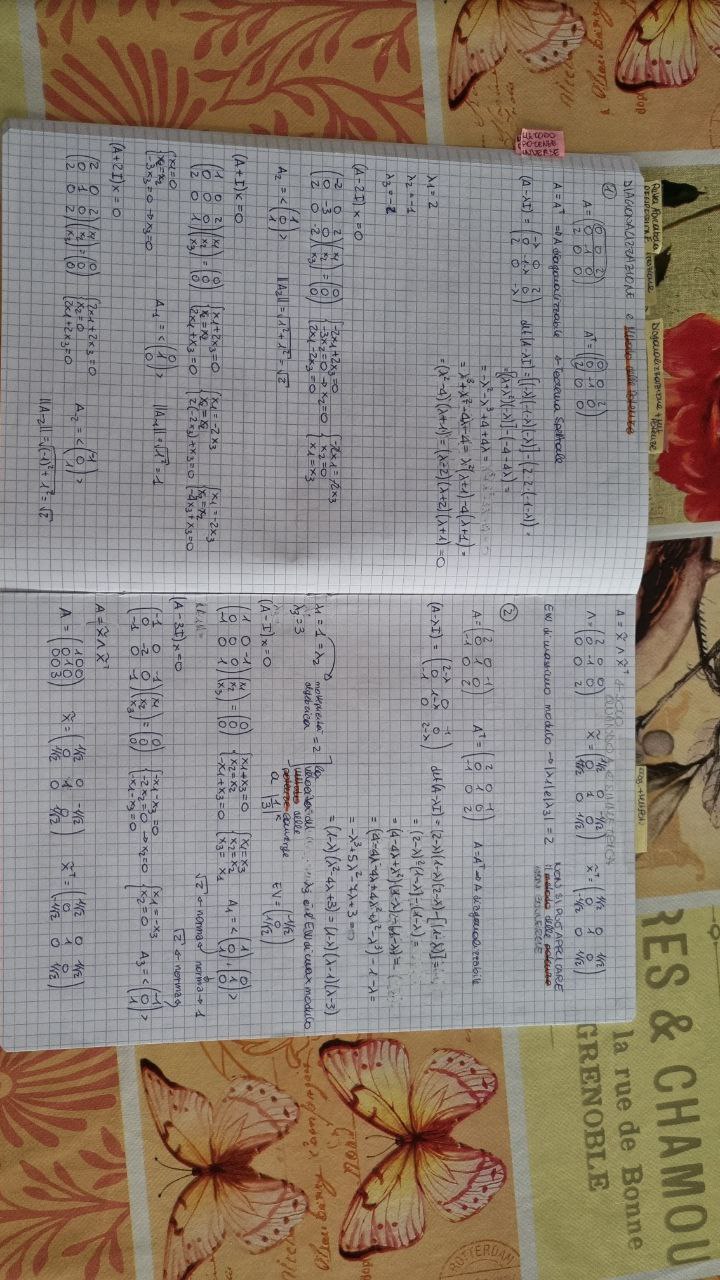 RES & CHAMOU
la rue de Bonne
GRENOBLE
Diagonalizzazione + Met
Potenze
DIAGONALIZZAZIONE e Metodo delle Potenze
①
A = (0 0 2 / 0 -1 0 / 2 0 0) Aᵀ = (0 0 2 / 0 -1 0 / 2 0 0)
A = Aᵀ ⇒ A diagonalizzabile ← Teorema Spettrale
(A-λI) = (-λ 0 2 / 0 -1-λ 0 / 2 0 -λ) det(A-λI) = [(-λ)(-1-λ)(-λ)] - (2·2·(-1-λ)) =
= [(λ+λ²)(-λ)] - (-4-4λ) =
= -λ²-λ³+4+4λ =
= λ³+λ²-4λ-4 = λ²(λ+1)-4(λ+1) =
= (λ²-4)(λ+1) = (λ-2)(λ+2)(λ+1) = 0
λ1 = 2
λ2 = -1
λ3 = -2
(A-2I)x = 0
(-2 0 2 / 0 -3 0 / 2 0 -2)(x1 / x2 / x3) = (0 / 0 / 0) {-2x1+2x3=0 / -3x2=0 → x2=0 / 2x1-2x3=0 {-2x1=-2x3 / x2=0 / x1=x3
A2 = <(1 / 0 / 1)> ||A2|| = √1²+1² = √2
(A+I)x = 0
(1 0 2 / 0 0 0 / 2 0 1)(x1 / x2 / x3) = (0 / 0 / 0) {x1+2x3=0 / x2=x2 / 2x1+x3=0 {x1=-2x3 / x2=x2 / 2(-2x3)+x3=0 {x1=-2x3 / x2=x2 / -4x3+x3=0
{x1=0 / x2=x2 / -3x3=0 → x3=0 A-1 = <(0 / 1 / 0)> ||A-1|| = √1² = 1
(A+2I)x = 0
(2 0 2 / 0 1 0 / 2 0 2)(x1 / x2 / x3) = (0 / 0 / 0) {2x1+2x3=0 / x2=0 / 2x1+2x3=0 A-2 = <(-1 / 0 / 1)>
||A-2|| = √(-1)²+1² = √2
A = X̃ Λ X̃ᵀ ← SOLO
QUANDO A È SIMMETRICA
Λ = (2 0 0 / 0 -1 0 / 0 0 2) X̃ = (1/√2 0 -1/√2 / 0 1 0 / 1/√2 0 1/√2) X̃ᵀ = (1/√2 0 1/√2 / 0 1 0 / -1/√2 0 1/√2)
EW di massimo modulo → |λ1| e |λ3| = 2 NON SI PUÒ APPLICARE
il metodo delle potenze
NON CONVERGE
②
A = (2 0 -1 / 0 1 0 / -1 0 2) Aᵀ = (2 0 -1 / 0 1 0 / -1 0 2) A = Aᵀ ⇒ A diagonalizzabile
(A-λI) = (2-λ 0 -1 / 0 1-λ 0 / -1 0 2-λ) det(A-λI) = (2-λ)(1-λ)(2-λ)-[(1-λ)] =
= (2-λ)²(1-λ)-(1-λ) =
= (4-4λ+λ²)(1-λ)-(1-λ) =
= (4-4λ-4λ+4λ²+λ²-λ³)-1-λ =
= -λ³+5λ²-7λ+3 =
= (1-λ)(λ²-4λ+3) = (1-λ)(λ-1)(λ-3)
λ1 = 1 = λ2 molteplicità algebrica = 2
λ3 = 3
la velocità del metodo delle potenze converge a |1/3|ᵏ
λ3 è l'EW di max modulo
EV = (-1/√2 / 0 / 1/√2)
(A-I)x = 0
(1 0 -1 / 0 0 0 / -1 0 1)(x1 / x2 / x3) = (0 / 0 / 0) {x1+x3=0 / x2=x2 / -x1+x3=0 {x1=x3 / x2=x2 / x3=x1 A1 = <(1 / 0 / 1), (0 / 1 / 0)>
√2 ← norma norma → 1
(A-3I)x = 0 √2 ← norma
(-1 0 -1 / 0 -2 0 / -1 0 -1)(x1 / x2 / x3) = (0 / 0 / 0) {-x1-x3=0 / -2x2=0 → x2=0 / -x1-x3=0 {x1=-x3 / x2=0 A3 = <(-1 / 0 / 1)>
A = X̃ Λ X̃ᵀ
Λ = (1 0 0 / 0 1 0 / 0 0 3) X̃ = (1/√2 0 -1/√2 / 0 1 0 / 1/√2 0 1/√2) X̃ᵀ = (1/√2 0 1/√2 / 0 1 0 / -1/√2 0 1/√2)